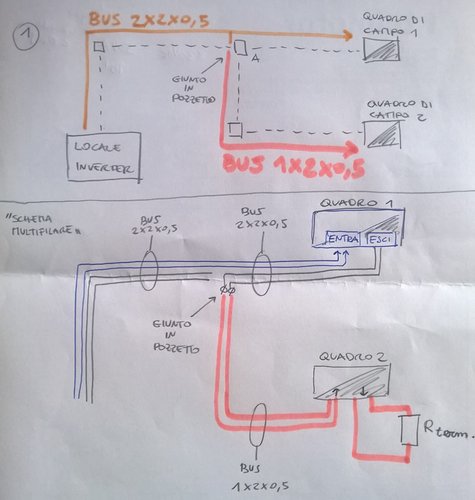 1
BUS 2x2x0,5
QUADRO DI
CAMPO 1
A
GIUNTO
IN
POZZETTO
QUADRO DI
CAMPO 2
LOCALE
INVERTER
BUS 1x2x0,5
"SCHEMA
MULTIFILARE"
BUS
2x2x0,5
BUS
2x2x0,5
QUADRO 1
ENTRA
ESCI
GIUNTO
IN
POZZETTO
QUADRO 2
R term.
BUS
1x2x0,5